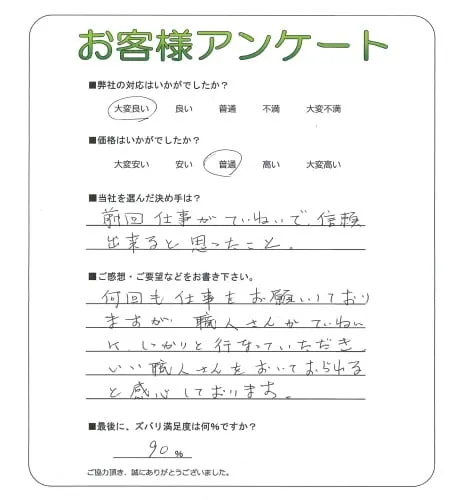 お客様アンケート
■弊社の対応はいかがでしたか？
大変良い 良い 普通 不満 大変不満
■価格はいかがでしたか？
大変安い 安い 普通 高い 大変高い
■当社を選んだ決め手は？
前回仕事がていねいで、信頼
出来ると思ったこと。
■ご感想・ご要望などをお書き下さい。
何回も仕事をお願いしており
ますが、職人さんがていねい
に、しっかりと行なっていただき
いい職人さんをおいておられる
と感心しております。
■最後に、ズバリ満足度は何%ですか？
90 %
ご協力頂き、誠にありがとうございました。